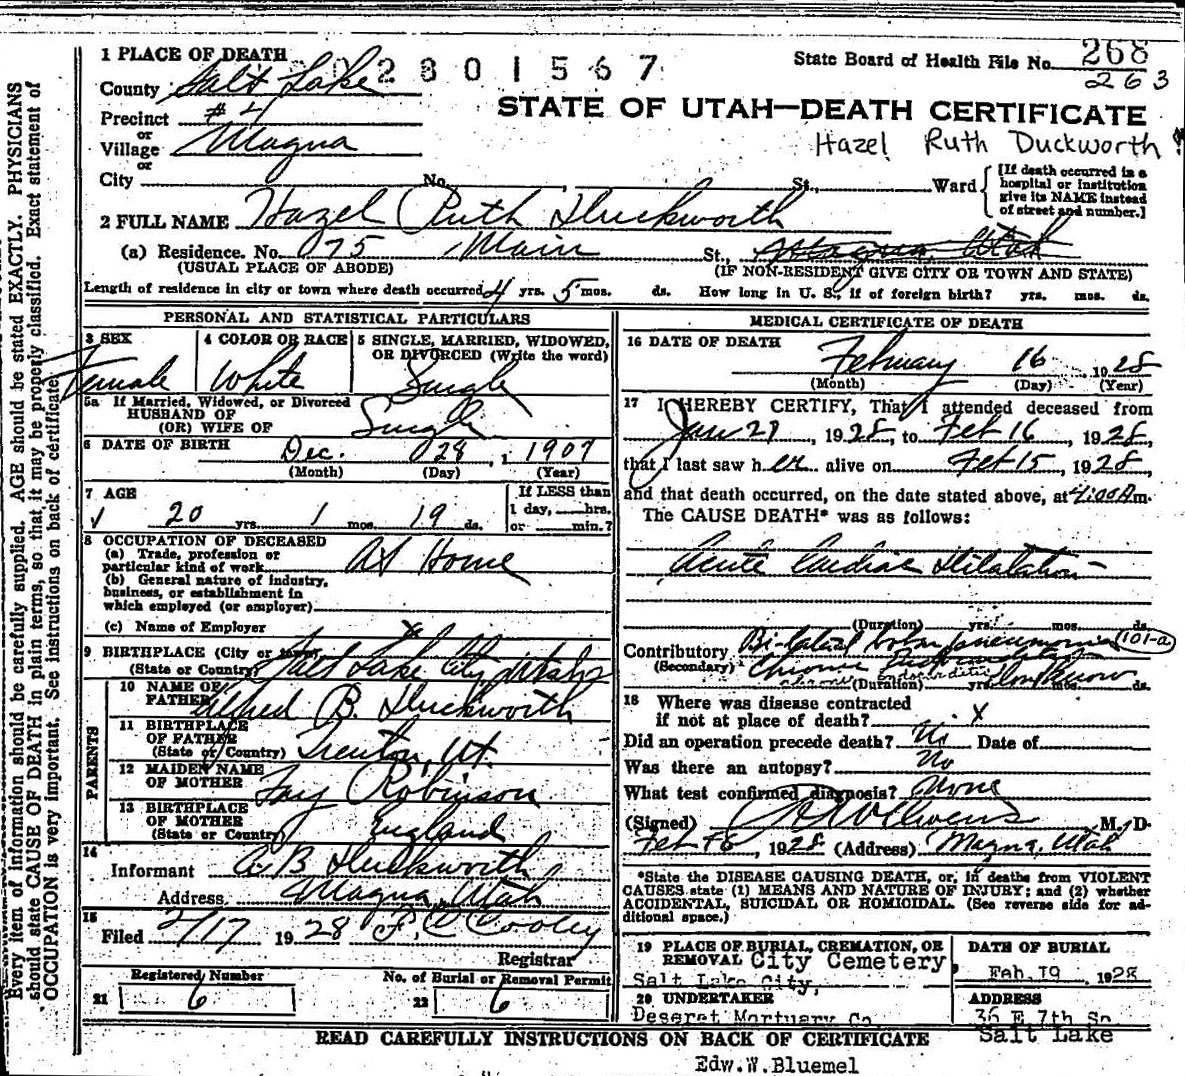 Every item of information should be carefully supplied. AGE should be stated EXACTLY. PHYSICIANS
should state CAUSE OF DEATH in plain terms, so that it may be properly classified. Exact statement of
OCCUPATION is very important. See instructions on back of certificate.
1 PLACE OF DEATH
2801567
State Board of Health File No. 268
263
County Salt Lake
Precinct #4
or
Village Magna
or
City No. St., Ward
STATE OF UTAH—DEATH CERTIFICATE
Hazel Ruth Duckworth
[If death occurred in a
hospital or institution
give its NAME instead
of street and number.]
2 FULL NAME Hazel Ruth Duckworth
(a) Residence. No. 075 Main St., Magna, Utah
(USUAL PLACE OF ABODE) (IF NON-RESIDENT GIVE CITY OR TOWN AND STATE)
Length of residence in city or town where death occurred 4 yrs. 5 mos. ds. How long in U. S., if of foreign birth? yrs. mos. ds.
PERSONAL AND STATISTICAL PARTICULARS
3 SEX
Female
4 COLOR OR RACE
White
5 SINGLE, MARRIED, WIDOWED,
OR DIVORCED (Write the word)
Single
5a If Married, Widowed, or Divorced
HUSBAND OF
(OR) WIFE OF Single
6 DATE OF BIRTH Dec. 28, 1907
(Month) (Day) (Year)
7 AGE
20 yrs. 1 mos. 19 ds.
If LESS than
1 day, hrs.
or min.?
8 OCCUPATION OF DECEASED
(a) Trade, profession or
particular kind of work At Home
(b) General nature of industry,
business, or establishment in
which employed (or employer)
(c) Name of Employer x
9 BIRTHPLACE (City or town)
(State or Country) Salt Lake City, Utah
PARENTS
10 NAME OF
FATHER Alfred B. Duckworth
11 BIRTHPLACE
OF FATHER
(State or Country) Trenton, Ut.
12 MAIDEN NAME
OF MOTHER Fay Robinson
13 BIRTHPLACE
OF MOTHER
(State or Country) England
14
Informant A B Duckworth
Address Magna, Utah
15
Filed 2/17 1928 F. C Cooley
Registrar
Registered Number
21 6
No. of Burial or Removal Permit
22 6
MEDICAL CERTIFICATE OF DEATH
16 DATE OF DEATH
February 16 1928
(Month) (Day) (Year)
17 I HEREBY CERTIFY, That I attended deceased from
Jan 27, 1928, to Feb 16, 1928,
that I last saw her alive on Feb 15, 1928,
and that death occurred, on the date stated above, at 4:00 A m.
The CAUSE DEATH* was as follows:
Acute Cardiac Dilatation
(Duration) yrs. mos. ds.
Contributory Bi-lateral lobar pneumonia 101-a
(Secondary) Chronic Endocarditis
(Duration) yrs. mos. ds.
18 Where was disease contracted
if not at place of death? x
Did an operation precede death? No Date of
Was there an autopsy? No
What test confirmed diagnosis? None
(Signed) Owens M. D.
Feb 16, 1928 (Address) Magna, Utah
*State the DISEASE CAUSING DEATH, or, in deaths from VIOLENT
CAUSES state (1) MEANS AND NATURE OF INJURY; and (2) whether
ACCIDENTAL, SUICIDAL OR HOMICIDAL. (See reverse side for ad-
ditional space.)
19 PLACE OF BURIAL, CREMATION, OR
REMOVAL City Cemetery
Salt Lake City,
DATE OF BURIAL
Feb. 19 1928
20 UNDERTAKER
Deseret Mortuary Co.
ADDRESS
36 E 7th So
Salt Lake
READ CAREFULLY INSTRUCTIONS ON BACK OF CERTIFICATE
Edw.W.Bluemel